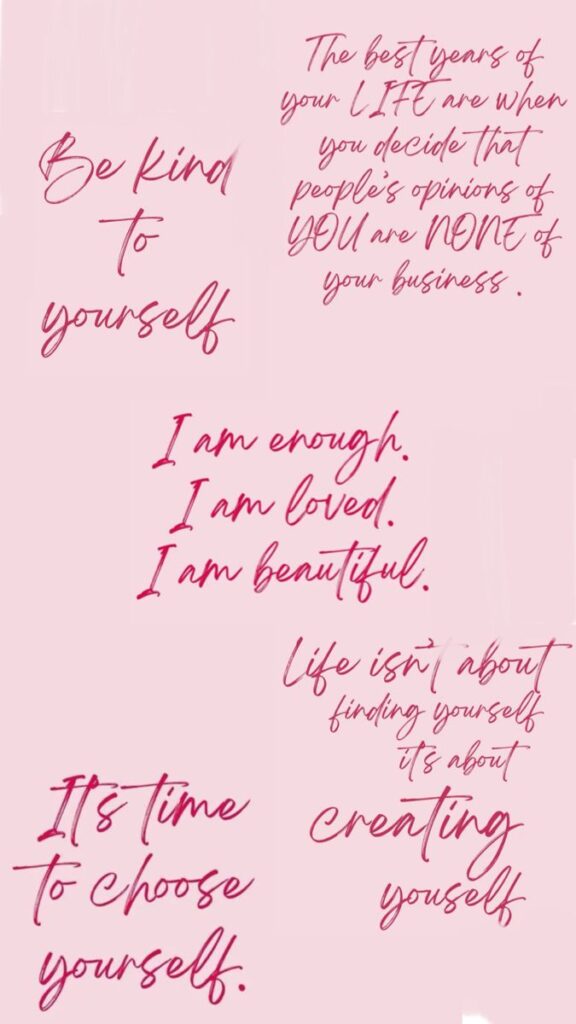 Be kind
to
yourself
The best years of
your LIFE are when
you decide that
people's opinions of
YOU are NONE of
your business.
I am enough.
I am loved.
I am beautiful.
Life isn't about
finding yourself
it's about
creating
youself
It's time
to choose
yourself.